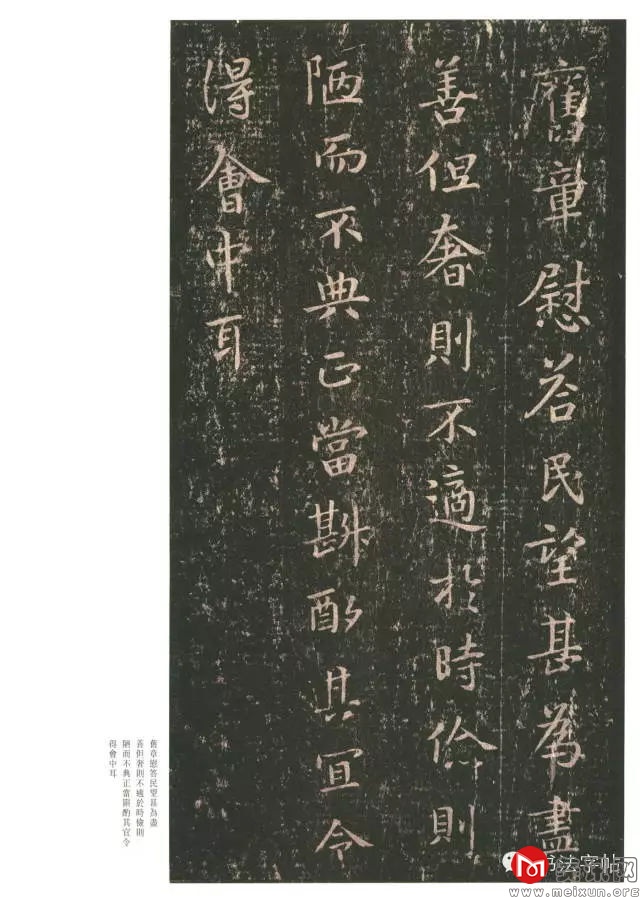 舊章慰荅民望甚為盡
善但奢則不適於時儉則
陋而不典正當斟酌其宜令
得會中耳
舊章慰答民望甚為盡
善但奢則不適於時儉則
陋而不典正當斟酌其宜令
得會中耳
书法字帖
www.meixun.org